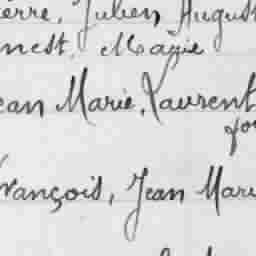 ierre, Julien August
nest, Marie
ean Marie, Laurent
for
François, Jean Mari